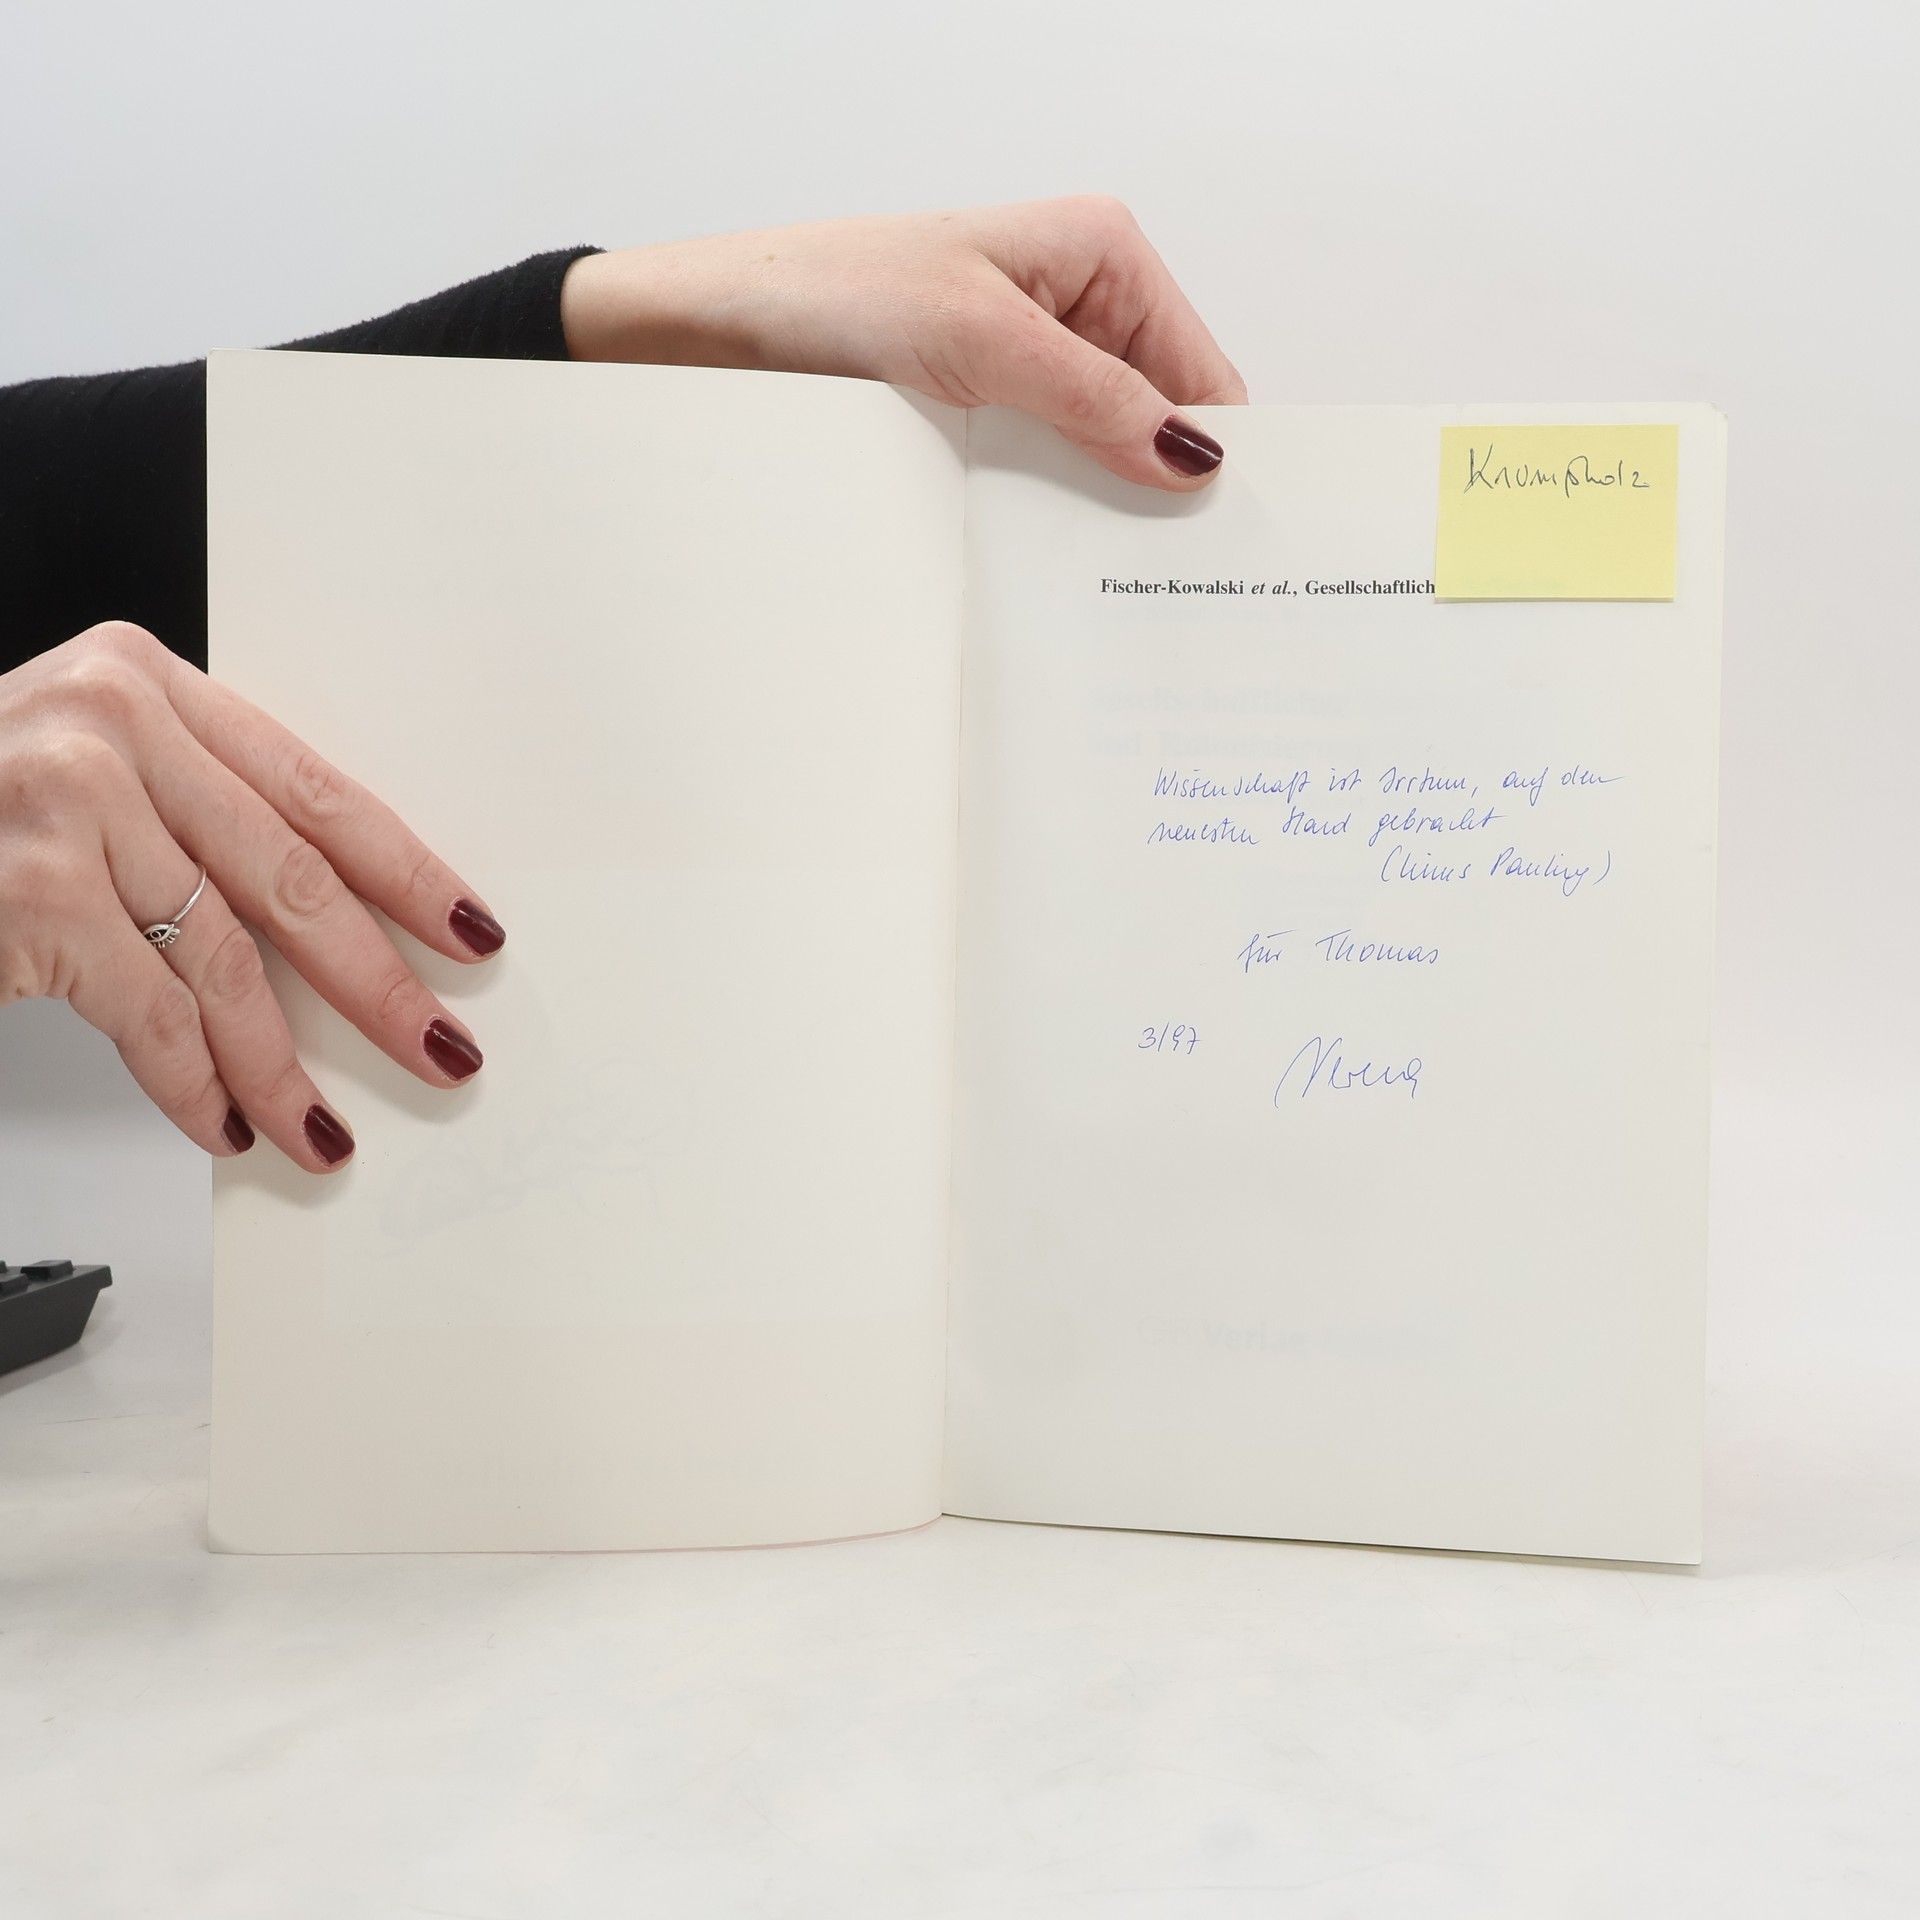 Krumpholz
Fischer-Kowalski et al., Gesellschaftlich
Wissenschaft ist Irrtum, auf den
neuesten Stand gebracht
(Linus Pauling)
für Thomas
3/97
Verena
Verlag